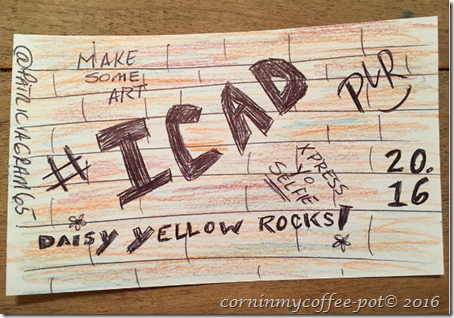 @PATRICIAGRAM65!
MAKE
SOME
ART
#ICAD
PLR
XPRESS
YO
SELFIE
20.
16
DAISY YELLOW ROCKS!
corninmycoffee-pot© 2016